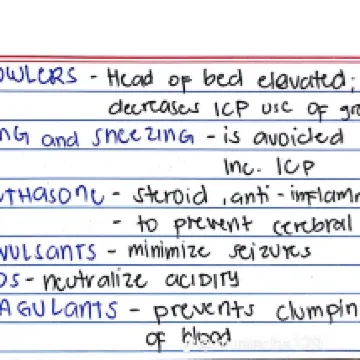 OWLERS - Head of bed elevated;
decreases ICP use of gr
NG and SNEEZING - is avoided
Inc. ICP
THASONE - steroid, anti-inflamm
- to prevent cerebral
VULSANTS - minimize seizures
DS - neutralize acidity
AGULANTS - prevents clumpin
of blood